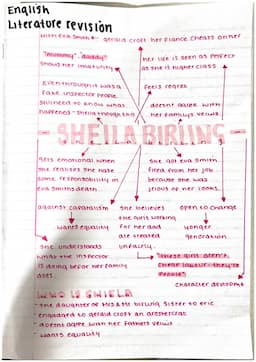 English
Literature revision
with Eva Smith ← gerald croft her fiance cheats on her
"mummy" "daddy"
shows her imaturity
her life is seen as perfect
as she is higher class
Even through it was a
fake inspector people
still need to know what
happened - sheila though this
feels regret
doesnt agree with
her familys veiws
- SHEILA BIRLING -
gets emotional when
she realises she hase
some responsibility in
eva smiths death
she got eva smith
fired from her job
because she was
jelous of her looks.
against capatalism
wants equality
she believes
the girls working
for her dad
are treated
unfairly.
open to change
yonger
generation
she understands
what the inspector
is doing befor her family
does.
"these girls aren't
cheap labour - they're
people"
character development
WHO IS SHIELA
- the daughter of Mrs & Mr birling, sister to eric
- engaged to gerald croft an arastercrat
- doesnt agree with her fathers veiws
- wants equality